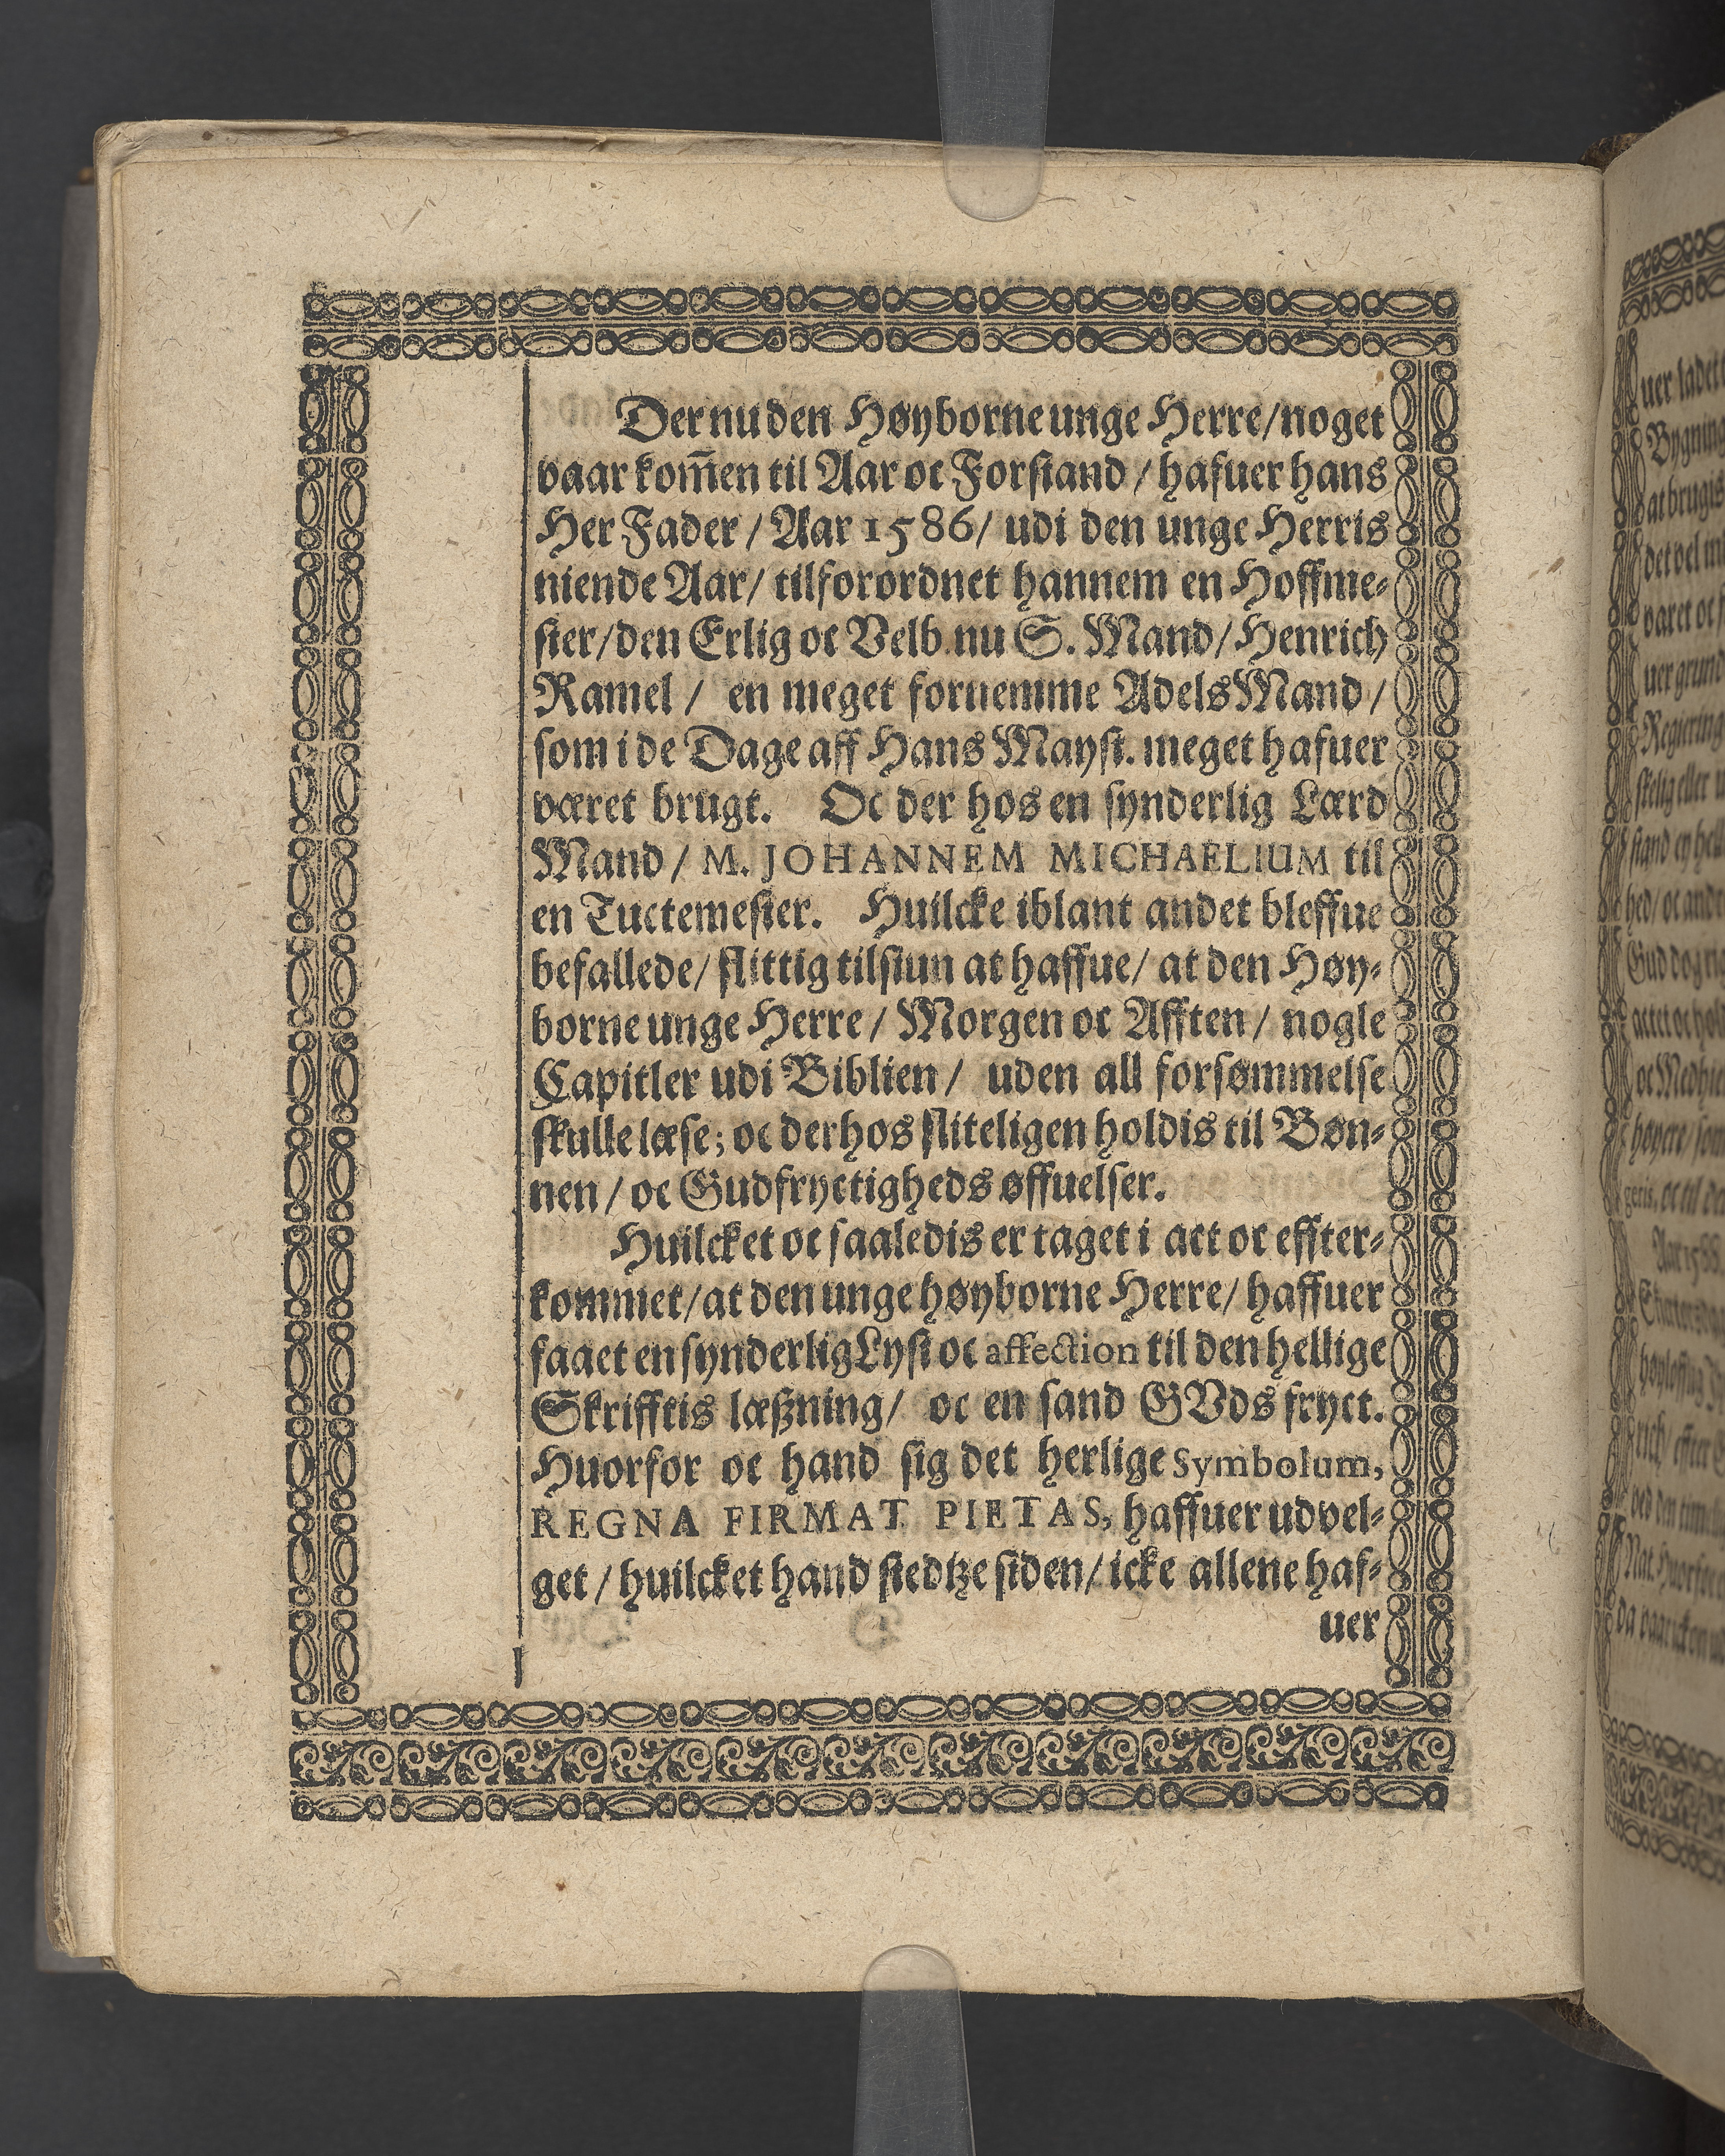 Der nu den Høyborne unge Herre/ noget
vaar kom̅en til Aar oc Forstand / hafuer hans
Her Fader / Aar 1586/ udi den unge Herris
niende Aar/ tilforordnet hannem en Hoffme⸗
ster/ den Erlig oc Velb. nu S. Mand/ Henrich
Ramel / en meget fornemme Adels Mand /
som i de Dage aff Hans Mayst. meget hafuer
været brugt. Oc der hos en synderlig Lærd
Mand / M. JOHANNEM MICHAELIUM til
en Tuctemester. Huilcke iblant andet bleffue
befallede/ flittig tilsiun at haffue/ at den Høy⸗
borne unge Herre / Morgen oc Afften / nogle
Capitler udi Biblien / uden all forsømmelse
skulle læse; oc derhos fliteligen holdis til Bøn⸗
nen / oc Gudfryctigheds øffuelser.
Huilcket oc saaledis er taget i act oc effter⸗
kommet/ at den unge høyborne Herre/ haffuer
faaet en synderlig Lyst oc affection til den hellige
Skrifftis læßning/ oc en sand GVds fryct.
Huorfor oc hand sig det herlige Symbolum,
REGNA FIRMAT PIETAS, haffuer udvel⸗
get / huilcket hand stedtze siden/ icke allene haf⸗
uer
uer ladet
Bygning
at brugis
det vel m
varet oc
uer grund
Regiering
Gud dog
oc Medhie
høyere/ som
geris, oc til de
Aar 1588.